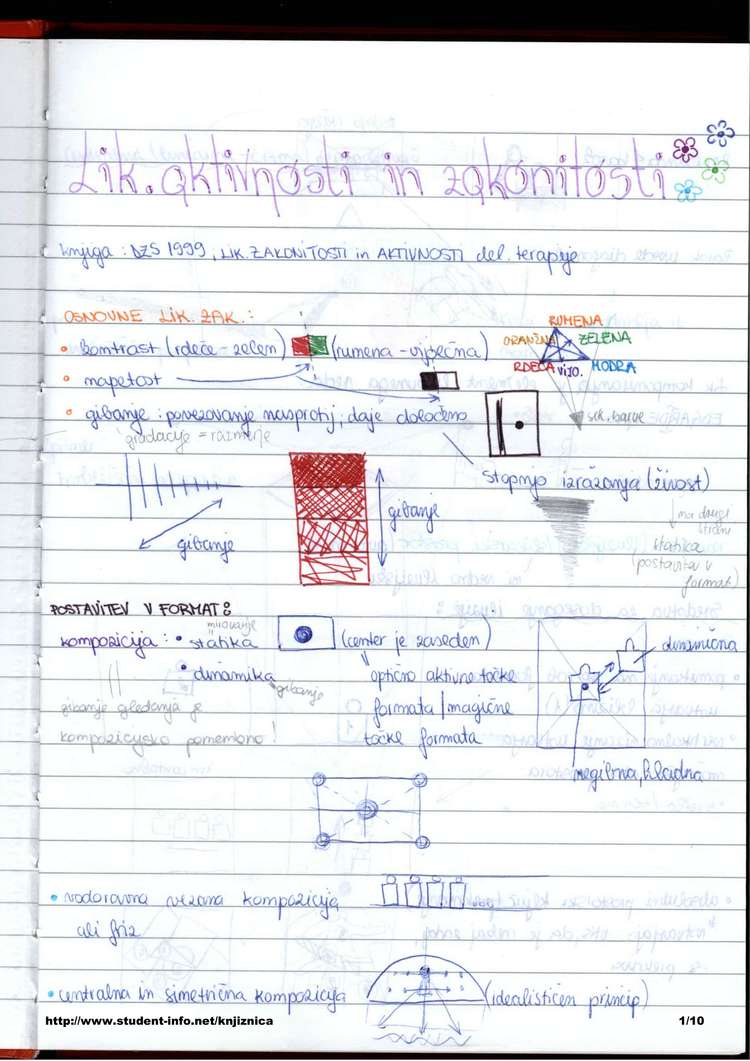 Lik. aktivnosti in zakonitosti
knjiga : DZS 1999, LIK. ZAKONITOSTI in AKTIVNOSTI del. terapije
OSNOVNE LIK. ZAK. :
• kontrast (rdeče - zelen) (rumena - vijolična)
RUMENA
ORANŽNA ZELENA
RDEČA VIJO. MODRA
• napetost
sek. barve
• gibanje : povezovanje nasprotij, daje določeno
gradacije = razmerje
stopnjo izražanja (živost)
gibanje
gibanje
na drugi strani
statika
(postavitev v
format)
POSTAVITEV V FORMAT :
mirovanje
kompozicija : • statika (center je zaseden)
dinamična
• dinamika optično aktivne točke
gibanje
gibanje gledanja je formata / magične
kompozicijsko pomembno ! točke formata
negibna, hladna
• vodoravna vezana kompozicija
ali friz
• centralna in simetrična kompozicija (idealističen princip)
http://www.student-info.net/knjiznica 1/10